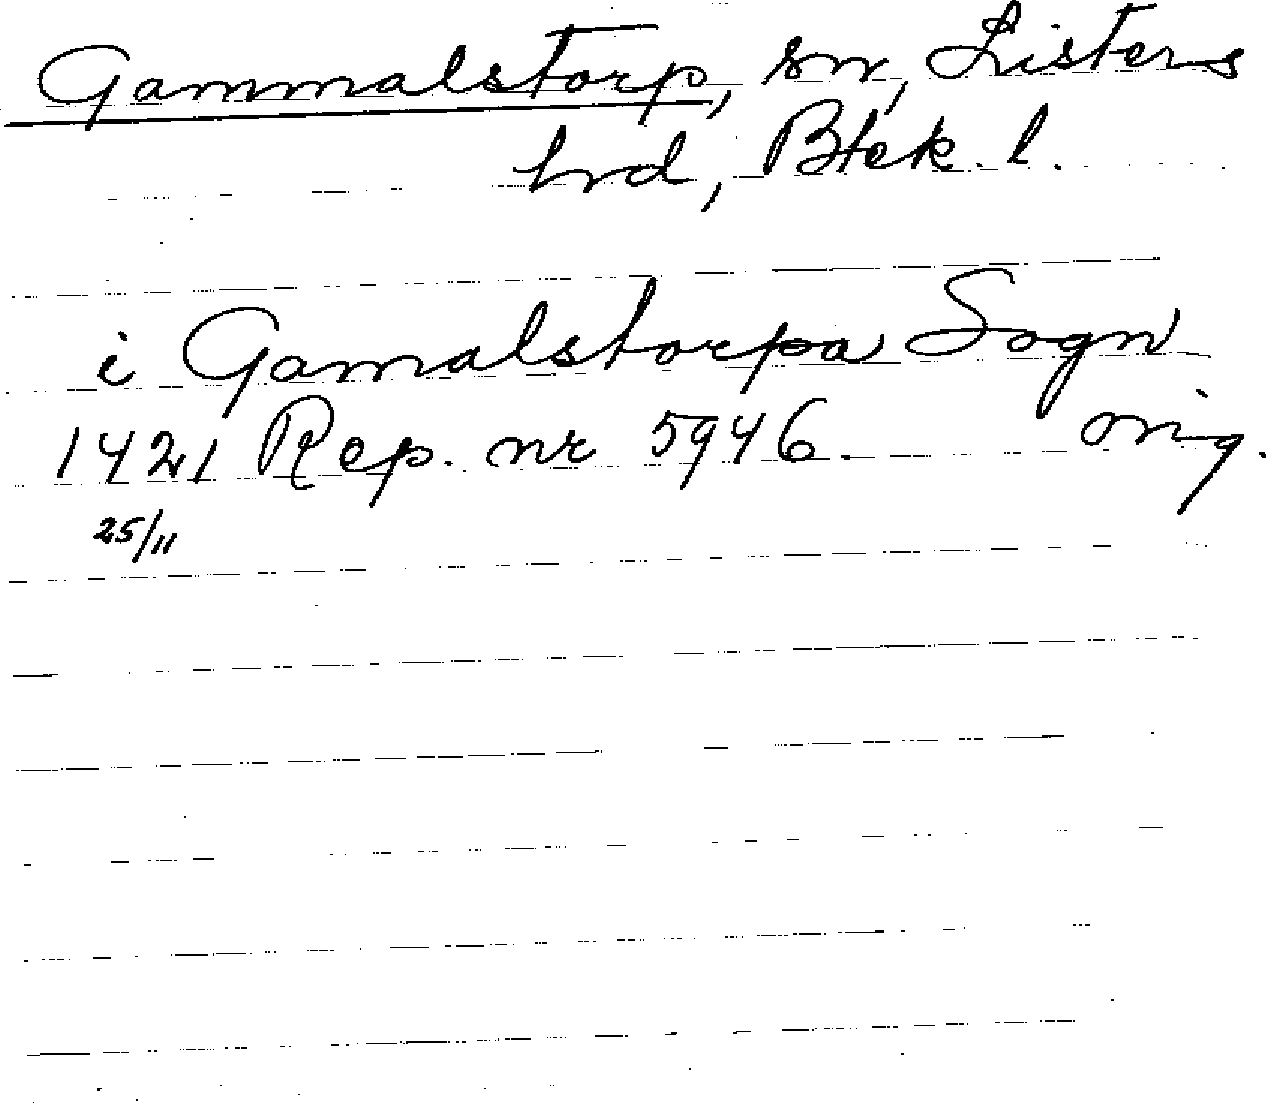 Gammalstorp, sn, Listers
hrd, Blek. l.
i Gamalstorpa Sogn
1421 Rep. nr 5946. orig.
25/11